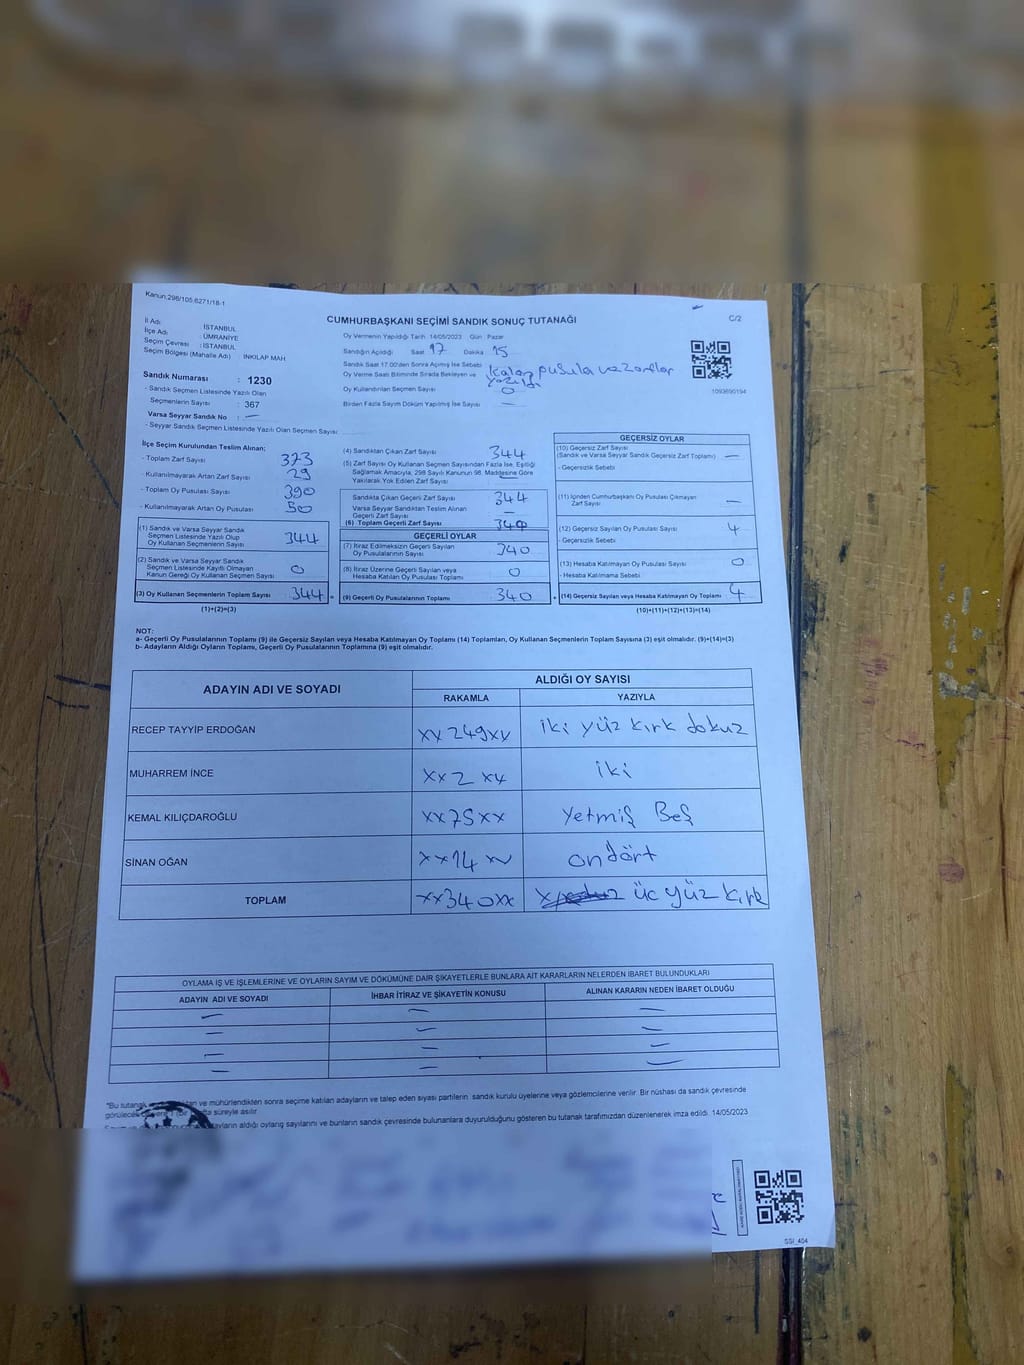 Kanun:298/105.6271/18-1
C/2
CUMHURBAŞKANI SEÇİMİ SANDIK SONUÇ TUTANAĞI
İl Adı : İSTANBUL
İlçe Adı : ÜMRANİYE
Seçim Çevresi : İSTANBUL
Seçim Bölgesi (Mahalle Adı) İNKILAP MAH
Oy Vermenin Yapıldığı Tarih 14/05/2023 Gün Pazar
Sandığın Açıldığı Saat 17 Dakika 15
Sandık Saat 17:00'den Sonra Açılmış İse Sebebi
Oy Verme Saati Bitiminde Sırada Bekleyen ve
Kalan pusula ve zarflar
yazıldı
Oy Kullandırılan Seçmen Sayısı 0
Birden Fazla Sayım Döküm Yapılmış İse Sayısı —
1093690194
Sandık Numarası : 1230
- Sandık Seçmen Listesinde Yazılı Olan
Seçmenlerin Sayısı : 367
Varsa Seyyar Sandık No : —
- Seyyar Sandık Seçmen Listesinde Yazılı Olan Seçmen Sayısı:
İlçe Seçim Kurulundan Teslim Alınan:
- Toplam Zarf Sayısı 373
- Kullanılmayarak Artan Zarf Sayısı 29
- Toplam Oy Pusulası Sayısı 390
- Kullanılmayarak Artan Oy Pusulası 50
(1) Sandık ve Varsa Seyyar Sandık
Seçmen Listesinde Yazılı Olup
Oy Kullanan Seçmenlerin Sayısı 344
(2) Sandık ve Varsa Seyyar Sandık
Seçmen Listesinde Kayıtlı Olmayan
Kanun Gereği Oy Kullanan Seçmen Sayısı 0
(3) Oy Kullanan Seçmenlerin Toplam Sayısı 344 =
(1)+(2)=(3)
(4) Sandıktan Çıkan Zarf Sayısı 344
(5) Zarf Sayısı Oy Kullanan Seçmen Sayısından Fazla İse, Eşitliği
Sağlamak Amacıyla, 298 Sayılı Kanunun 98. Maddesine Göre
Yakılarak Yok Edilen Zarf Sayısı
Sandıkta Çıkan Geçerli Zarf Sayısı 344
Varsa Seyyar Sandıktan Teslim Alınan
Geçerli Zarf Sayısı —
(6) Toplam Geçerli Zarf Sayısı
GEÇERLİ OYLAR
(7) İtiraz Edilmeksizin Geçerli Sayılan
Oy Pusulalarının Sayısı 340
(8) İtiraz Üzerine Geçerli Sayılan veya
Hesaba Katılan Oy Pusulası Toplamı 0
(9) Geçerli Oy Pusulalarının Toplamı 340 +
GEÇERSİZ OYLAR
(10) Geçersiz Zarf Sayısı
(Sandık ve Varsa Seyyar Sandık Geçersiz Zarf Toplamı) —
- Geçersizlik Sebebi
(11) İçinden Cumhurbaşkanı Oy Pusulası Çıkmayan
Zarf Sayısı —
(12) Geçersiz Sayılan Oy Pusulası Sayısı 4
- Geçersizlik Sebebi
(13) Hesaba Katılmayan Oy Pusulası Sayısı 0
- Hesaba Katılmama Sebebi
(14) Geçersiz Sayılan veya Hesaba Katılmayan Oy Toplamı 4
(10)+(11)+(12)+(13)=(14)
NOT:
a- Geçerli Oy Pusulalarının Toplamı (9) ile Geçersiz Sayılan veya Hesaba Katılmayan Oy Toplamı (14) Toplamları, Oy Kullanan Seçmenlerin Toplam Sayısına (3) eşit olmalıdır. (9)+(14)=(3)
b- Adayların Aldığı Oyların Toplamı, Geçerli Oy Pusulalarının Toplamına (9) eşit olmalıdır.
ADAYIN ADI VE SOYADI ALDIĞI OY SAYISI
RAKAMLA YAZIYLA
RECEP TAYYİP ERDOĞAN xx 249xx iki yüz kırk dokuz
MUHARREM İNCE xx 2 xx iki
KEMAL KILIÇDAROĞLU xx75xx Yetmiş Beş
SİNAN OĞAN xx14 xx ondört
TOPLAM xx340xx üc yüz kırk
OYLAMA İŞ VE İŞLEMLERİNE VE OYLARIN SAYIM VE DÖKÜMÜNE DAİR ŞİKAYETLERLE BUNLARA AİT KARARLARIN NELERDEN İBARET BULUNDUKLARI
ADAYIN ADI VE SOYADI İHBAR İTİRAZ VE ŞİKAYETİN KONUSU ALINAN KARARIN NEDEN İBARET OLDUĞU
— — —
— — —
— — —
— — —
*Bu tutanak ve mühürlendikten sonra seçime katılan adayların ve talep eden siyasi partilerin sandık kurulu üyelerine veya gözlemcilerine verilir. Bir nüshası da sandık çevresinde
görülecek süreyle asılır
aldığı oyların sayılarını ve bunların sandık çevresinde bulunanlara duyurulduğunu gösteren bu tutanak tarafımızdan düzenlenerek imza edildi. 14/05/2023
SSI_404